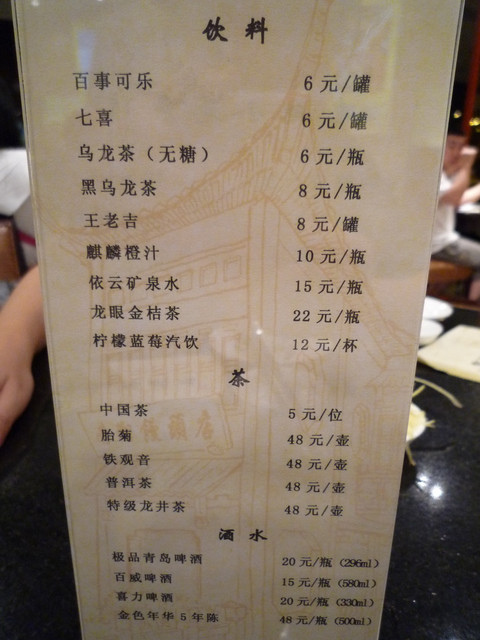 饮料
百事可乐 6 元/罐
七喜 6 元/罐
乌龙茶（无糖） 6 元/瓶
黑乌龙茶 8 元/瓶
王老吉 8 元/罐
麒麟橙汁 10 元/瓶
依云矿泉水 15 元/瓶
龙眼金桔茶 22 元/瓶
柠檬蓝莓汽饮 12 元/杯
茶
中国茶 5 元/位
胎菊 48 元/壶
铁观音 48 元/壶
普洱茶 48 元/壶
特级龙井茶 48 元/壶
酒水
极品青岛啤酒 20 元/瓶（296ml）
百威啤酒 15 元/瓶（580ml）
喜力啤酒 20 元/瓶（330ml）
金色年华 5 年陈 48 元/瓶（500ml）